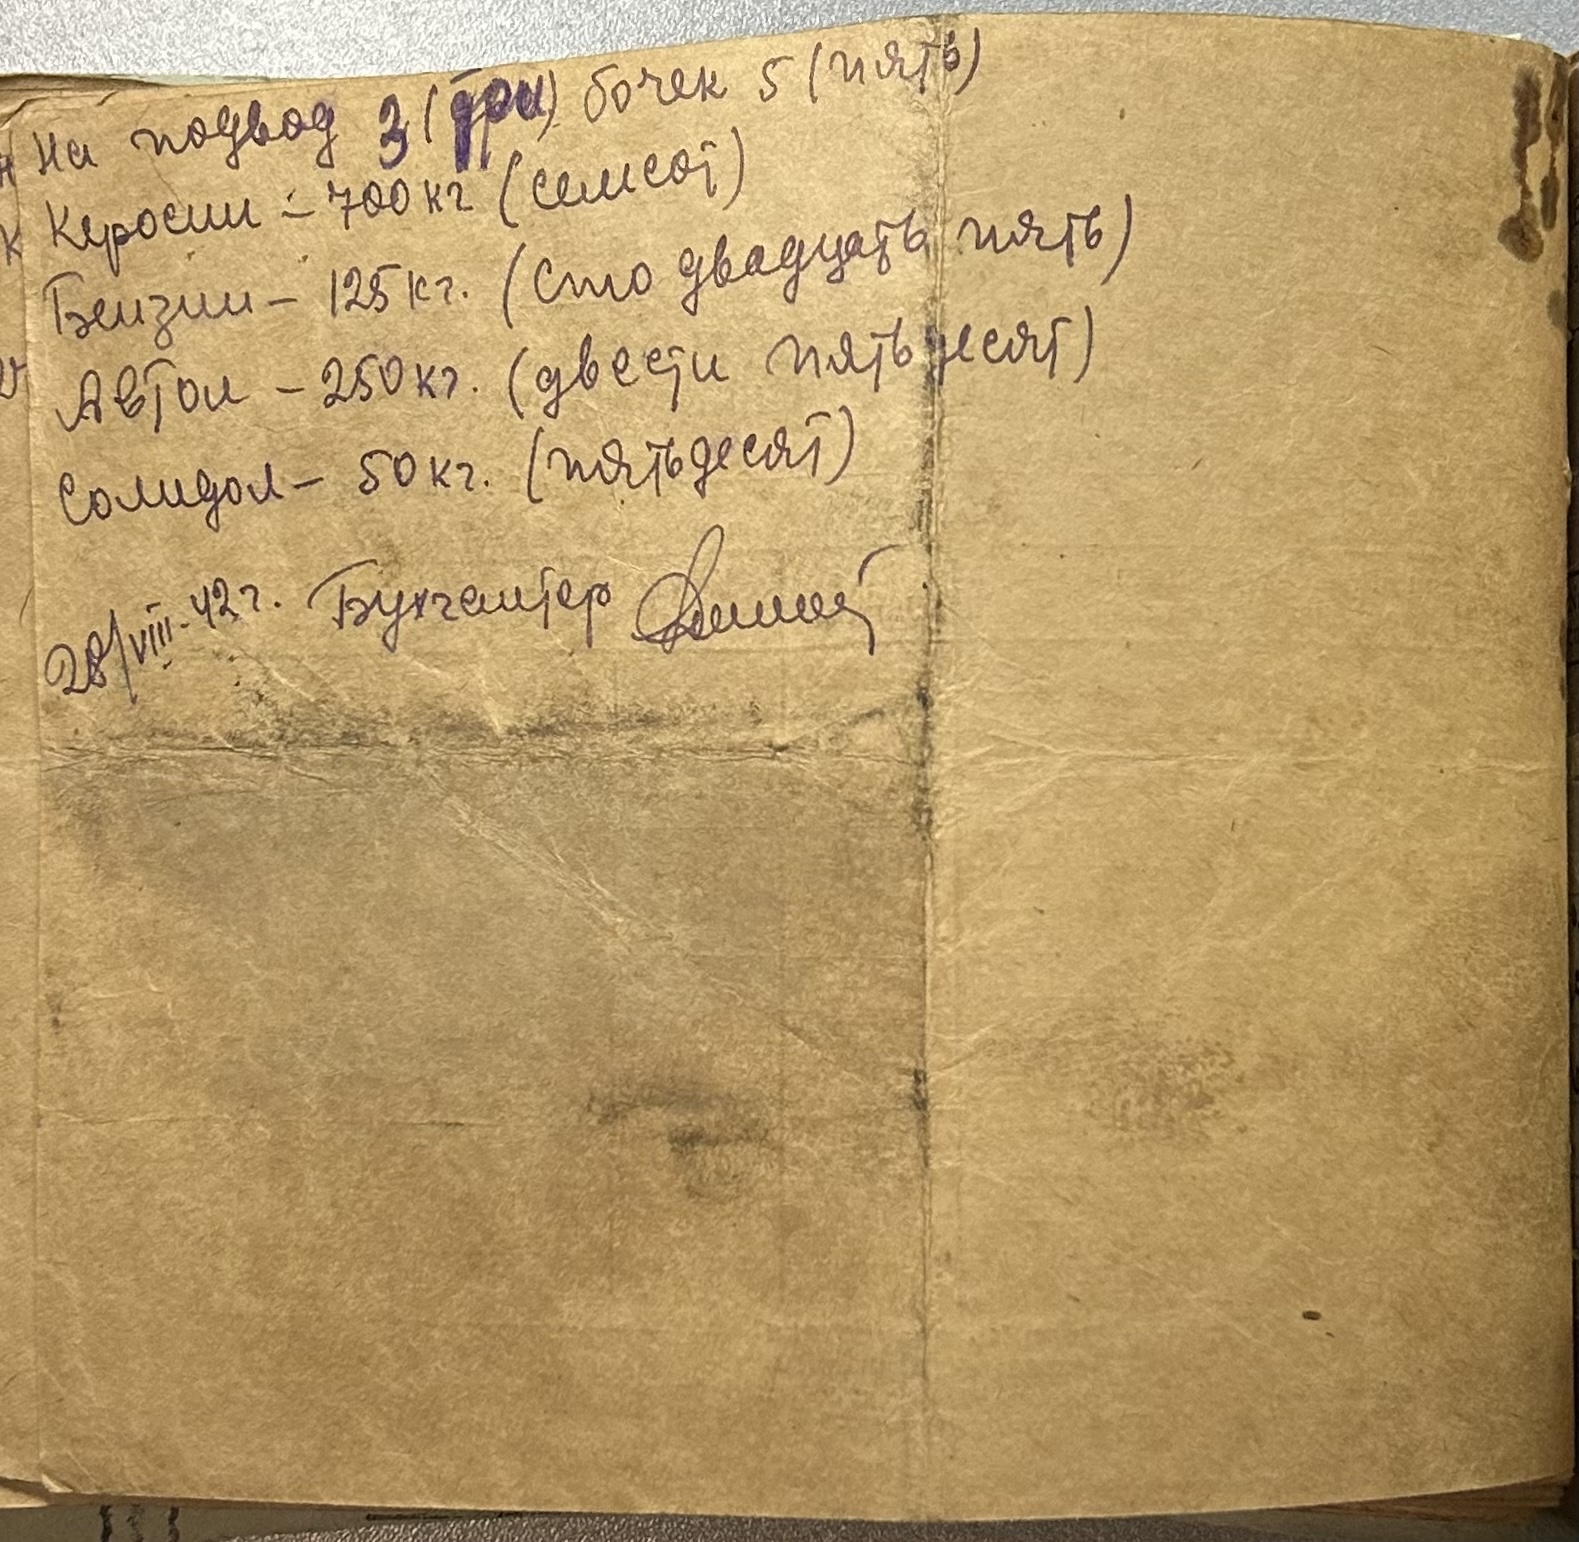 На подвод 3 (три) бочек 5 (пять)
Керосин - 700 кг (семсот)
Бензин - 125 кг. (сто двадцать пять)
Автол - 250 кг. (двести пятьдесят)
Солидол - 50 кг. (пятьдесят)
28/VIII-42 г. Бухгалтер